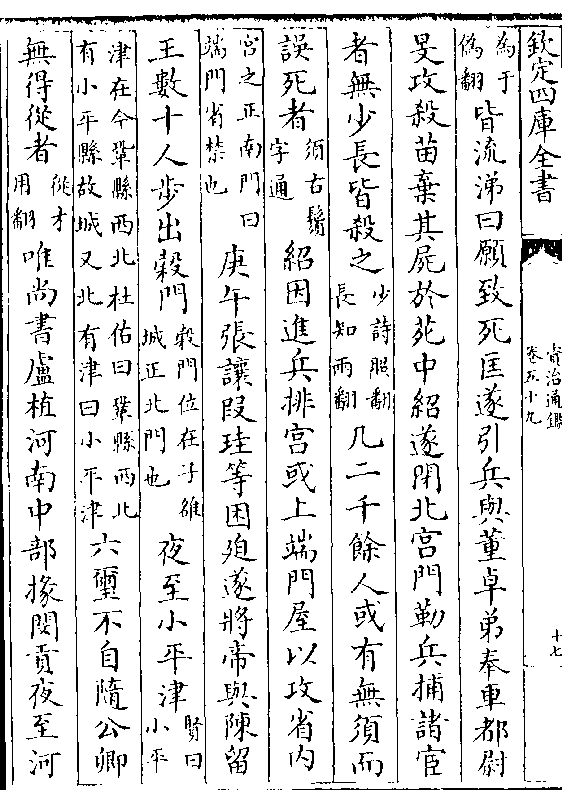 欽定四庫全書
資治通鑑
卷五十九
十七
為于偽翻皆流涕曰願致死匡遂引兵與董卓弟奉車都尉
旻攻殺苗棄其屍於苑中紹遂閉北宫門勒兵捕諸宦
者無少長皆殺之少詩照翻長知兩翻凡二千餘人或有無須而
誤死者須古鬚字通紹因進兵排宫或上端門屋以攻省内
宫之正南門曰端門省禁也庚午張讓段珪等困迫遂將帝與陳留
王數十人步出穀門穀門位在子雒城正北門也夜至小平津賢曰小平
津在今鞏縣西北杜佑曰鞏縣西北有小平縣故城又北有津曰小平津六璽不自隨公卿
無得從者從才用翻唯尚書盧植河南中部掾閔貢夜至河